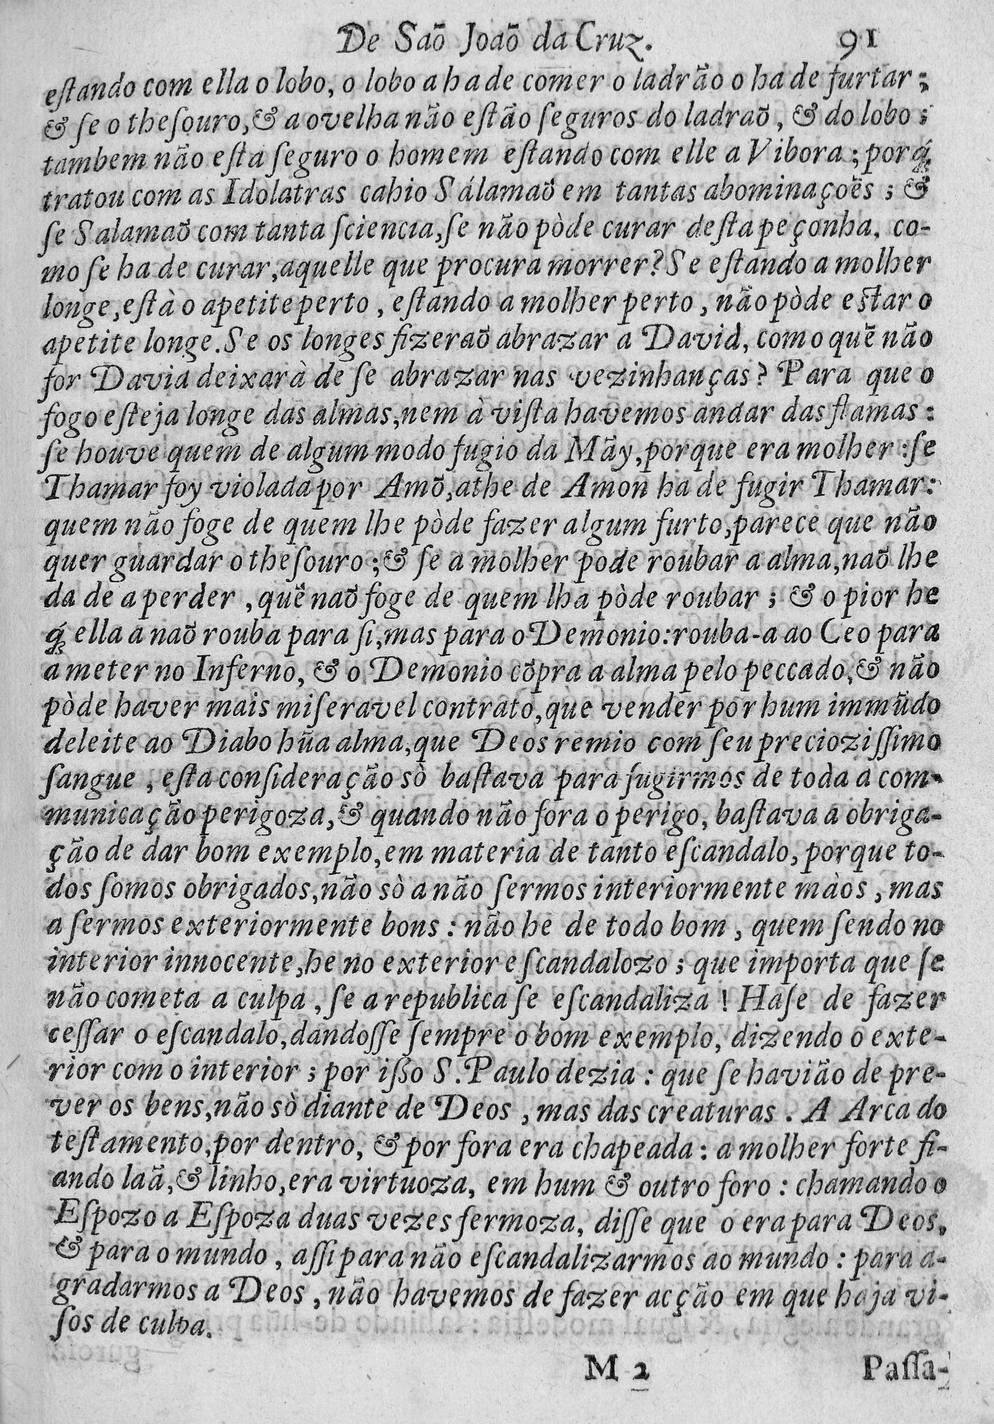 De Saõ Joaõ da Cruz. 91
eſtando com ella o lobo, o lobo a ha de comer o ladrão o ha de furtar;
& ſe o theſouro, & a ovelha não eſtão ſeguros do ladraõ, & do lobo;
tambem não eſta ſeguro o homem eſtando com elle a Vibora; porq́;
tratou com as Idolatras cahio Sálamaõ em tantas abominaçoẽs; &
ſe Salamaõ com tanta ſciencia, ſe não pòde curar deſta peçonha, co-
mo ſe ha de curar, aquelle que procura morrer? Se eſtando a molher
longe, eſtà o apetite perto, eſtando a molher perto, não pòde eſtar o
apetite longe. Se os longes fizeraõ abrazar a David, como quẽ não
for David deixarà de ſe abrazar nas vezinhanças? Para que o
fogo eſteja longe das almas, nem à viſta havemos andar das flamas:
ſe houve quem de algum modo fugio da Mãy, porque era molher: ſe
Thamar foy violada por Amõ, athe de Amon ha de fugir Thamar:
quem não foge de quem lhe pòde fazer algum furto, parece que não
quer guardar o theſouro; & ſe a molher pode roubar a alma, naõ lhe
da de a perder, quẽ naõ foge de quem lha pòde roubar; & o pior he
q́ ella a naõ rouba para ſi, mas para o Demonio: rouba-a ao Ceo para
a meter no Inferno, & o Demonio cõpra a alma pelo peccado, & não
pòde haver mais miſeravel contrato, què vender por hum immũdo
deleite ao Diabo hũa alma, que Deos remio com ſeu preciozíſſimo
ſangue, eſta conſideração sò baſtava para fugirmos de toda a com-
municação perigoza, & quando não fora o perigo, baſtava a obriga-
ção de dar bom exemplo, em materia de tanto eſcandalo, porque to-
dos ſomos obrigados, não sò a não ſermos interiormente màos, mas
a ſermos exteriormente bons: não he de todo bom, quem ſendo no
interior innocente, he no exterior eſcandalozo; que importa que ſe
não cometa a culpa, ſe a republica ſe eſcandaliza! Haſe de fazer
ceſſar o eſcandalo, dandoſſe ſempre o bom exemplo, dizendo o exte-
rior com o interior; por iſſo S. Paulo dezia: que ſe havião de pre-
ver os bens, não sò diante de Deos, mas das creaturas. A Arca do
teſtamento, por dentro, & por fora era chapeada: a molher forte fi-
ando laã, & linho, era virtuoza, em hum & outro foro: chamando o
Eſpozo a Eſpoza duas vezes fermoza, diſſe que o era para Deos,
& para o mundo, aſſi para não eſcandalizarmos ao mundo: para a-
gradarmos a Deos, não havemos de fazer acção em que haja vi-
ſos de culpa.
M 2 Paſſa-